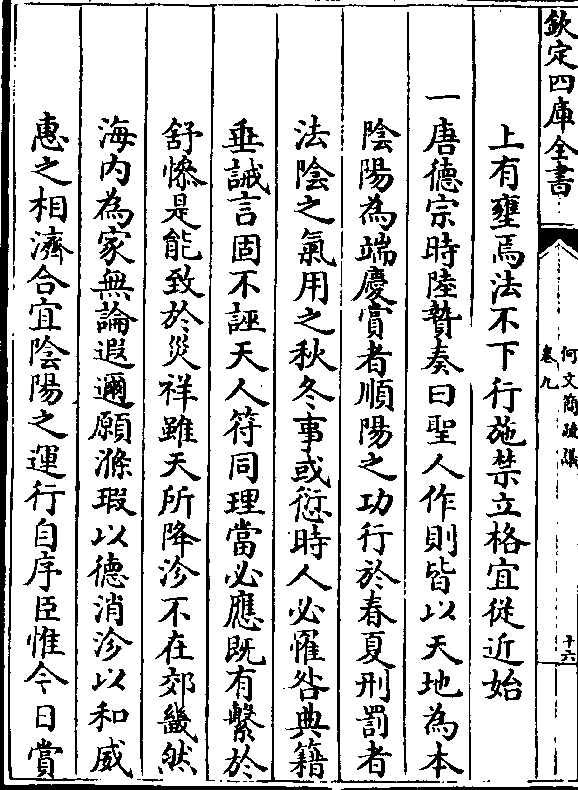 欽定四庫全書
何文簡疏議
卷九
十六
上有壅焉法不下行施禁立格宜從近始
一唐德宗時陸贄奏曰聖人作則皆以天地為本
陰陽為端慶賞者順陽之功行於春夏刑罰者
法陰之氣用之秋冬事或愆時人必罹咎典籍
垂誡言固不誣天人符同理當必應既有繫於
舒慘是能致於災祥雖天所降沴不在郊畿然
海内為家無論遐邇願滌瑕以德消沴以和威
惠之相濟合宜陰陽之運行自序臣惟今日賞